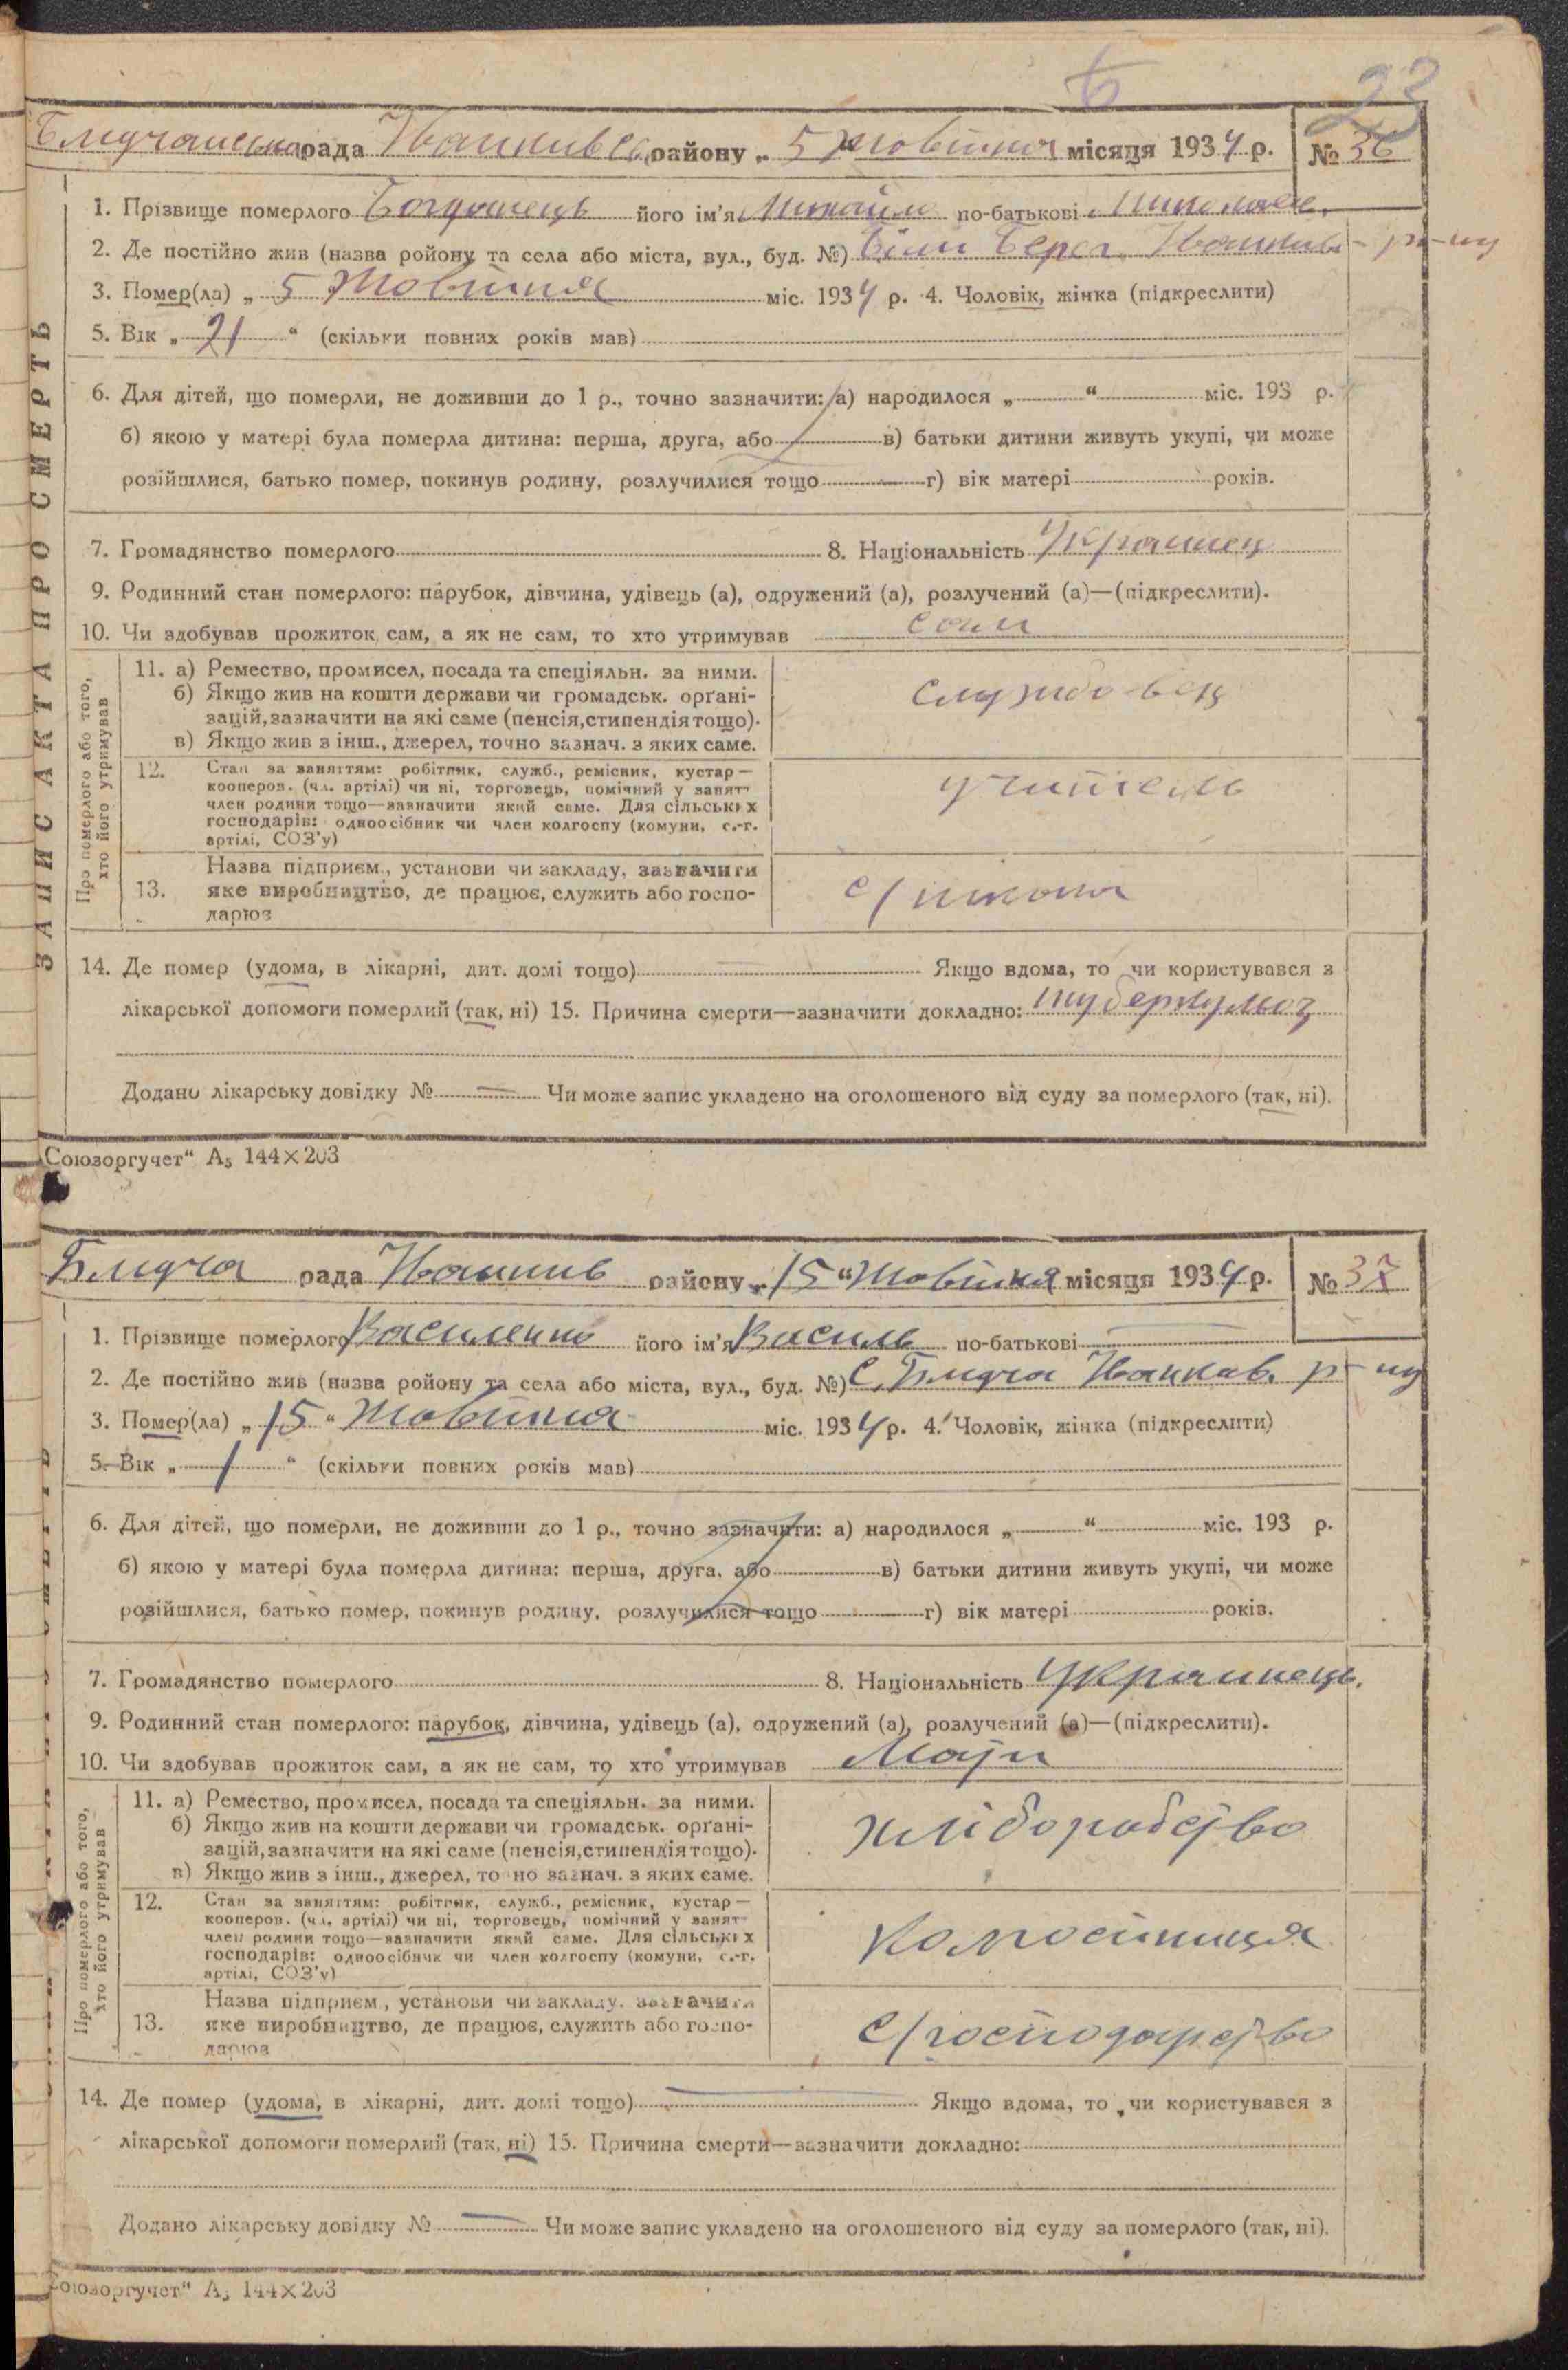 23
Блидчанська рада Іванківськ району „ 5 " жовтня місяця 1934 р. № 36
ЗАПИС АКТА ПРО СМЕРТЬ
1. Прізвище померлого Богданець його ім'я Михайло по-батькові
2. Де постійно жив (назва ройону та села або міста, вул., буд. №) Біли Берег Іванків р-ну
3. Помер(ла) „ 5 Жовтня міс. 1934 р. 4. Чоловік, жінка (підкреслити)
5. Вік „ 21 " (скільки повних років мав)
6. Для дітей, що померли, не доживши до 1 р., точно зазначити: а) народилося „ " міс. 193 р.
б) якою у матері була померла дитина: перша, друга, або в) батьки дитини живуть укупі, чи може
розійшлися, батько помер, покинув родину, розлучилися тощо г) вік матері років.
7. Громадянство померлого 8. Національність Українец
9. Родинний стан померлого: парубок, дівчина, удівець (а), одружений (а), розлучений (а)—(підкреслити).
10. Чи здобував прожиток сам, а як не сам, то хто утримував сам
Про померлого або того, хто його утримував
11. а) Ремество, промисел, посада та спеціяльн. за ними.
б) Якщо жив на кошти держави чи громадськ. орґані-
зацій, зазначити на які саме (пенсія, стипендія тощо).
в) Якщо жив з інш., джерел, точно зазнач. з яких саме.
службовец
12. Стан за заняттям: робітник, служб., ремісник, кустар—
кооперов. (чл. артілі) чи ні, торговець, помічний у занят‑
член родини тощо—зазначити який саме. Для сільських
господарів: одноосібник чи член колгоспу (комуни, с.-г.
артілі, СОЗ'у)
учитель
Назва підприєм., установи чи закладу, зазначити
13. яке виробництво, де працює, служить або госпо-
дарює
с/школа
14. Де помер (удома, в лікарні, дит. домі тощо) Якщо вдома, то чи користувався з
лікарської допомоги померлий (так, ні) 15. Причина смерти—зазначити докладно: туберкульоз
Додано лікарську довідку № — Чи може запис укладено на оголошеного від суду за померлого (так, ні).
Союзоргучет" А5 144×203
Блидча рада Іванків району „ 15 " Жовтня місяця 1934 р. № 37
1. Прізвище померлого Василенко його ім'я Василь по-батькові —
2. Де постійно жив (назва ройону та села або міста, вул., буд. №) С. Блидча Іванков. р-ну
3. Помер(ла) „ 15 " Жовтня міс. 1934 р. 4. Чоловік, жінка (підкреслити)
5. Вік „ 1 " (скільки повних років мав)
6. Для дітей, що померли, не доживши до 1 р., точно зазначити: а) народилося „ " міс. 193 р.
б) якою у матері була померла дитина: перша, друга, або в) батьки дитини живуть укупі, чи може
розійшлися, батько помер, покинув родину, розлучилися тощо г) вік матері років.
7. Громадянство померлого 8. Національність Українець.
9. Родинний стан померлого: парубок, дівчина, удівець (а), одружений (а), розлучений (а)—(підкреслити).
10. Чи здобував прожиток сам, а як не сам, то хто утримував Мати
Про померлого або того, хто його утримував
11. а) Ремество, промисел, посада та спеціяльн. за ними.
б) Якщо жив на кошти держави чи громадськ. орґані-
зацій, зазначити на які саме (пенсія, стипендія тощо).
в) Якщо жив з інш., джерел, точно зазнач. з яких саме.
хліборобство
12. Стан за заняттям: робітник, служб., ремісник, кустар—
кооперов. (чл. артілі) чи ні, торговець, помічний у занят‑
член родини тощо—зазначити який саме. Для сільських
господарів: одноосібник чи член колгоспу (комуни, с.-г.
артілі, СОЗ'у)
Колгоспниця
Назва підприєм., установи чи закладу, зазначити
13. яке виробництво, де працює, служить або госпо-
дарює
с/господарство
14. Де помер (удома, в лікарні, дит. домі тощо) — Якщо вдома, то чи користувався з
лікарської допомоги померлий (так, ні) 15. Причина смерти—зазначити докладно:
Додано лікарську довідку № — Чи може запис укладено на оголошеного від суду за померлого (так, ні).
Союзоргучет" А5 144×203